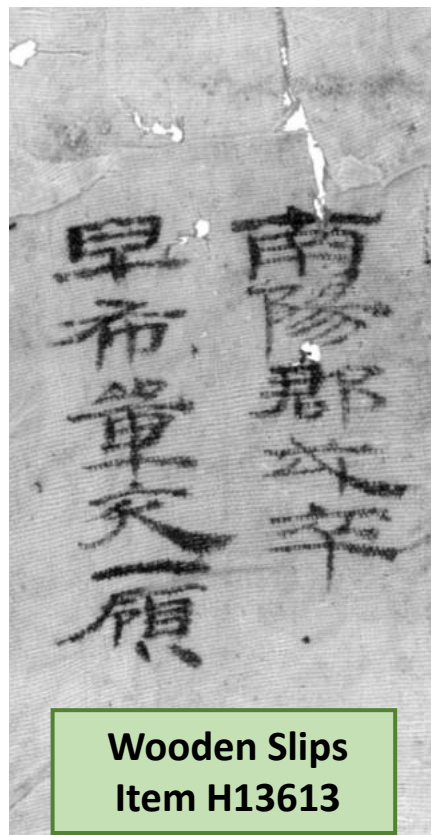 南陽郡戍卒
早布單衣一領
Wooden Slips
Item H13613